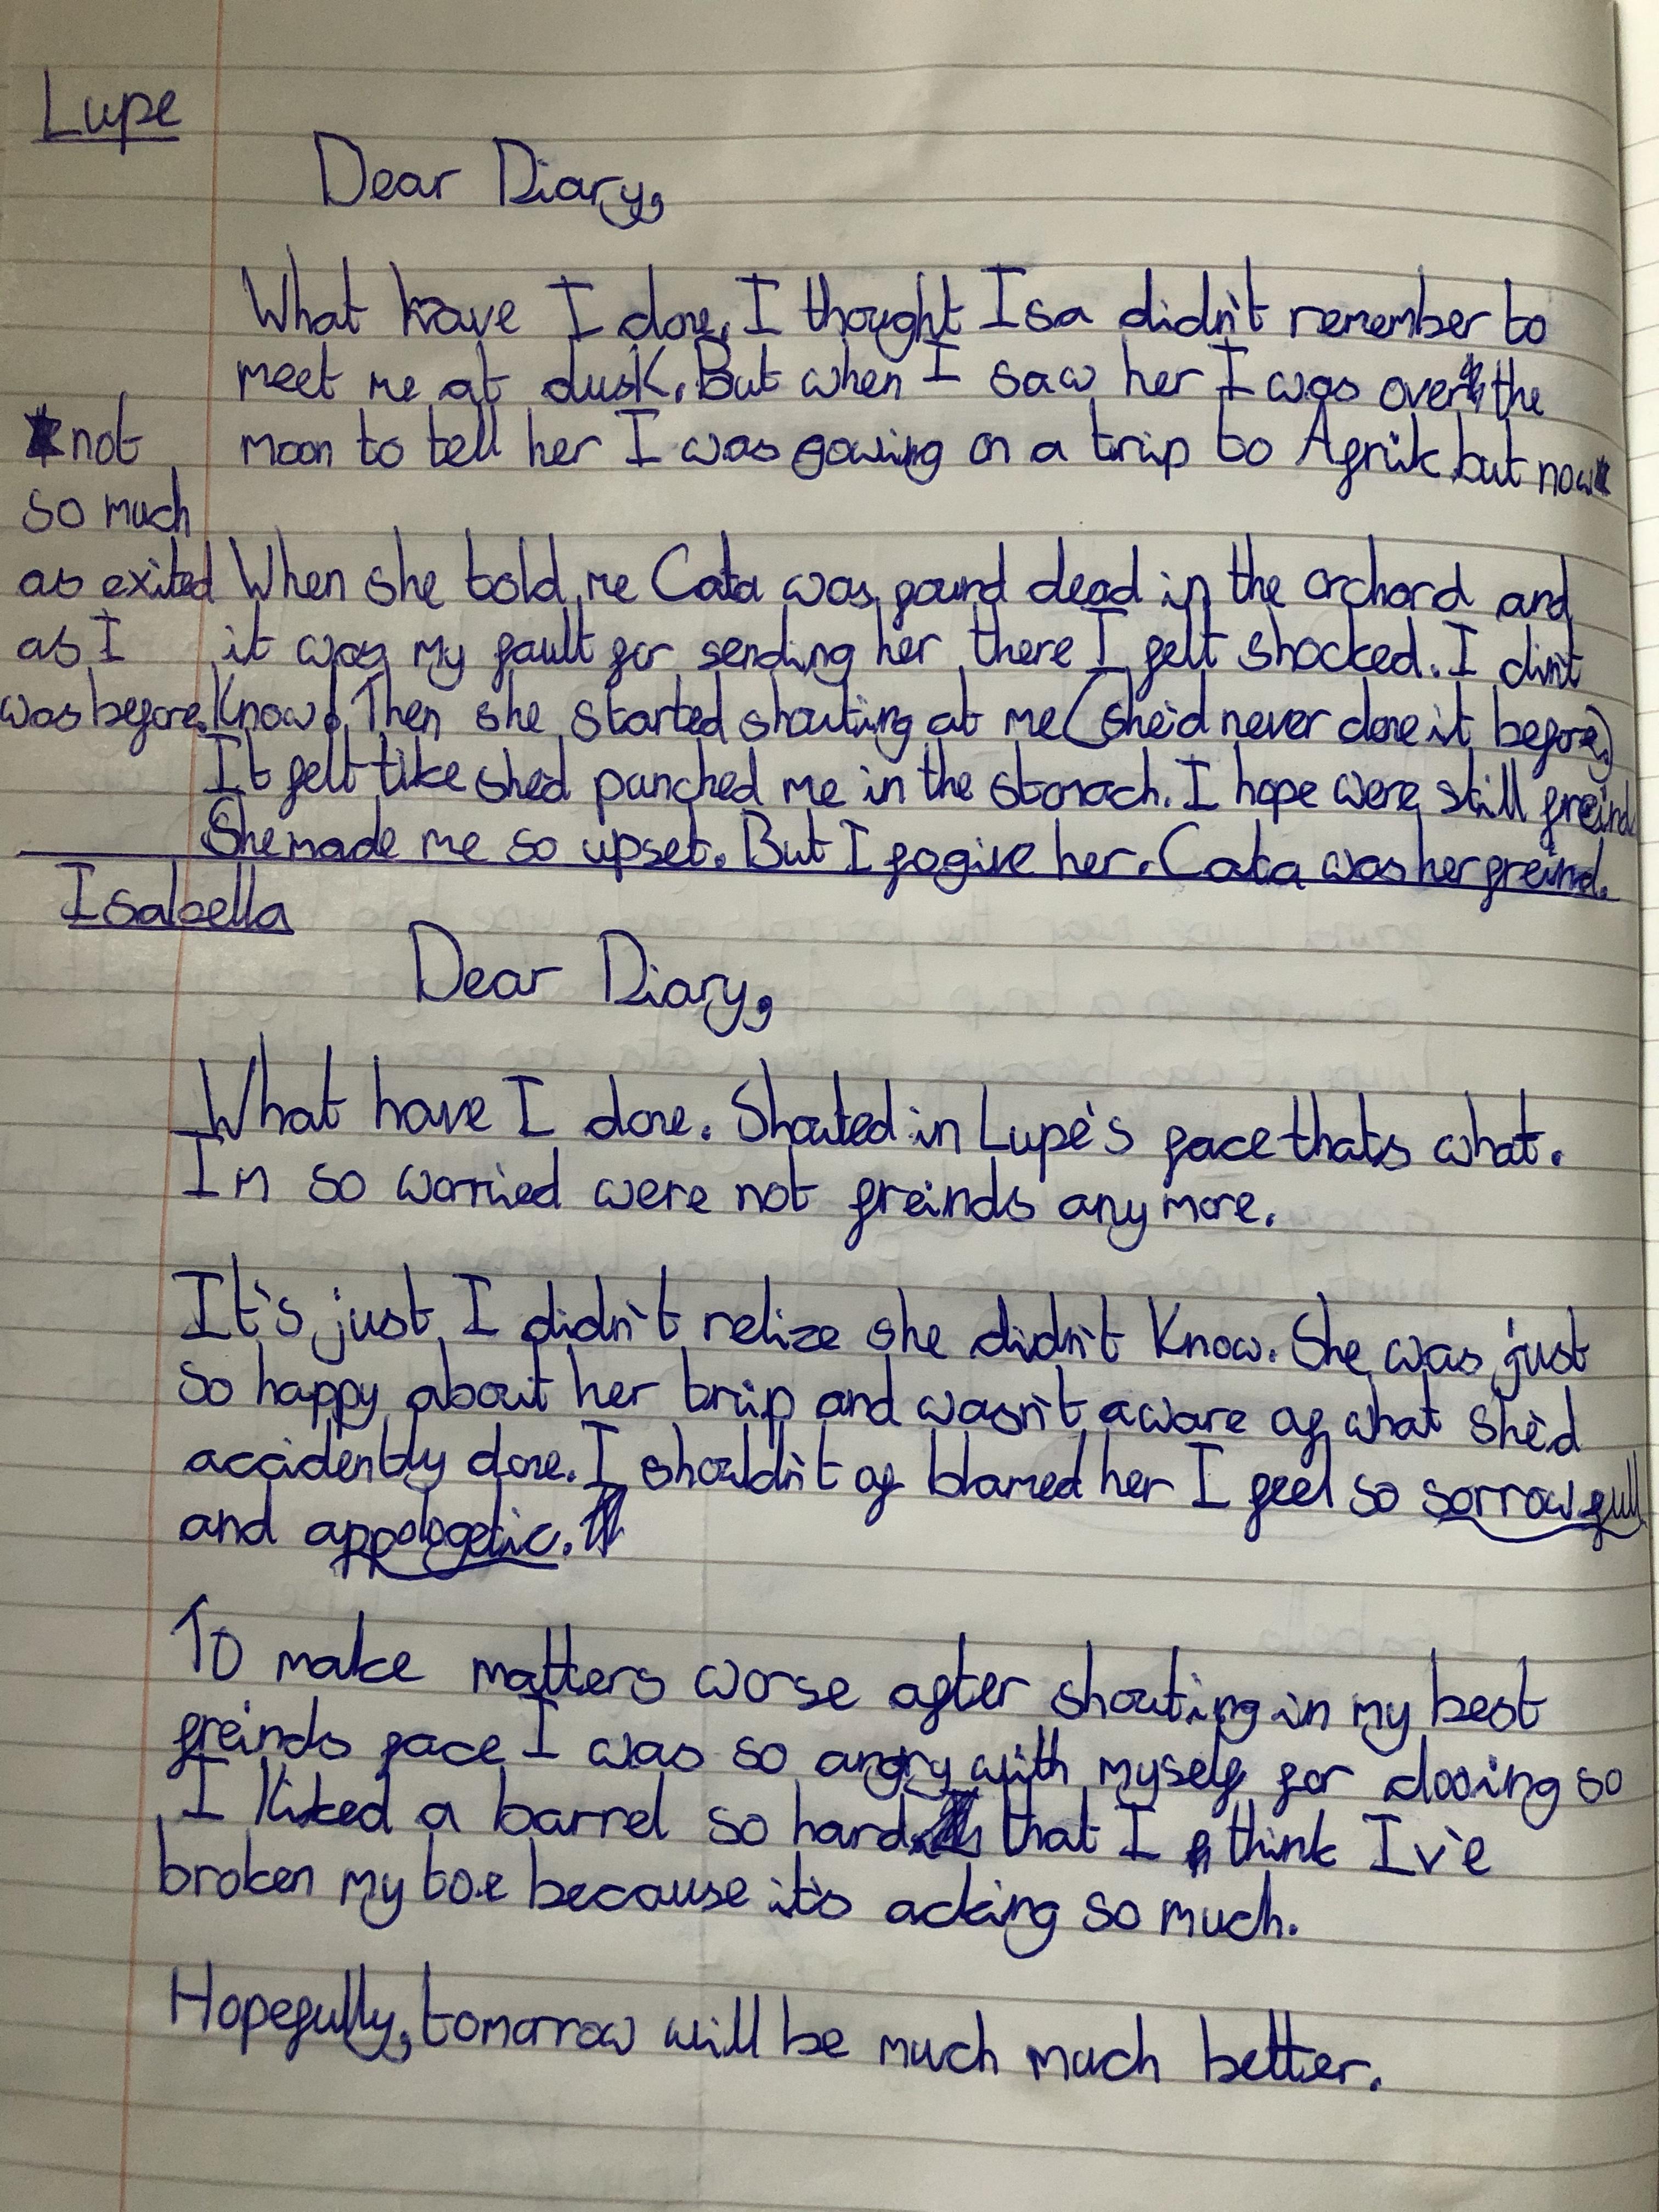 Lupe
Dear Diary,
What have I done. I thought Isa didn't remember to
meet me at dusk. But when I saw her I was over the
moon to tell her I was gowing on a trip to Afrik but now*
*not
so much
as exited
as I
was before.
When she told me Cata was found dead in the orchord and
it was my fault for sending her there I felt shocked. I dint
know! Then she started shouting at me (she'd never done it before)
It felt like shed punched me in the stomach. I hope were still freinds
She made me so upset. But I fogive her. Cata was her freind.
Isabella
Dear Diary,
What have I done. Shouted in Lupe's face thats what.
I'm so worried were not freinds anymore.
It's just I didn't relize she didn't know. She was just
so happy about her trip and wasn't aware of what she'd
accidently done. I shouldn't of blamed her I feel so sorrowfull
and appologetic.
To make matters worse after shouting in my best
freinds face I was so angry with myself for dooing so
I kiked a barrel so hard that I think Iv'e
broken my toe because it's acking so much.
Hopefully, tomorrow will be much much better.